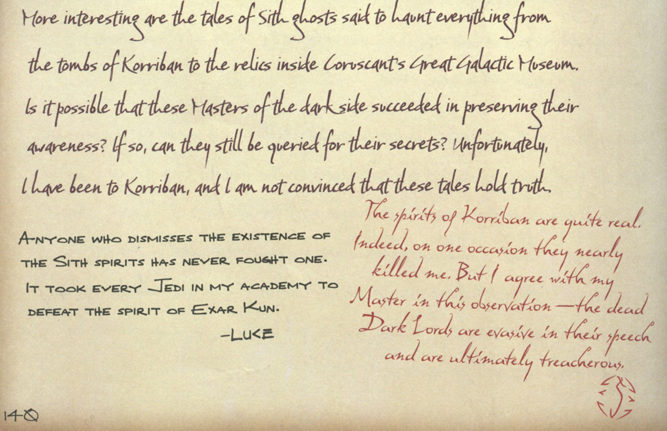 More interesting are the tales of Sith ghosts said to haunt everything from
the tombs of Korriban to the relics inside Coruscant's Great Galactic Museum.
Is it possible that these Masters of the dark side succeeded in preserving their
awareness? If so, can they still be queried for their secrets? Unfortunately,
I have been to Korriban, and I am not convinced that these tales hold truth.
Anyone who dismisses the existence of
the Sith spirits has never fought one.
It took every Jedi in my academy to
defeat the spirit of Exar Kun.
-Luke
The spirits of Korriban are quite real.
Indeed, on one occasion they nearly
killed me. But I agree with my
Master in this observation—the dead
Dark Lords are evasive in their speech
and are ultimately treacherous.
140